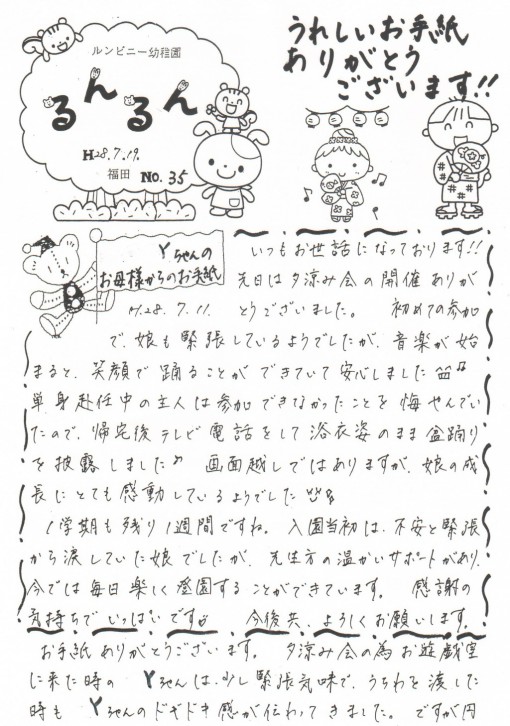 ルンビニー幼稚園
るんるん
H28.7.19.
福田 No.35
うれしいお手紙
ありがとう
ございます!!
Yちゃんの
お母様からのお手紙
H.28.7.11.
いつもお世話になっております!!
先日は夕涼み会の開催ありが
とうございました。 初めての参加
で、娘も緊張しているようでしたが、音楽が始
まると、笑顔で踊ることができていて安心しました
単身赴任中の主人は参加できなかったことを悔やんでい
たので、帰宅後テレビ電話をして浴衣姿のまま盆踊り
を披露しました♪ 画面越しではありますが、娘の成
長にとても感動しているようでした
1学期も残り1週間ですね。 入園当初は、不安と緊張
から涙していた娘でしたが、先生方の温かいサポートがあり、
今では毎日楽しく登園することができています。 感謝の
気持ちでいっぱいです 今後共、よろしくお願いします。
お手紙ありがとうございます。 夕涼み会の為お遊戯室
に来た時の Yちゃんは、少し緊張気味で、うちわを渡した
時も Yちゃんのドキドキ感が伝わってきました。 ですが円